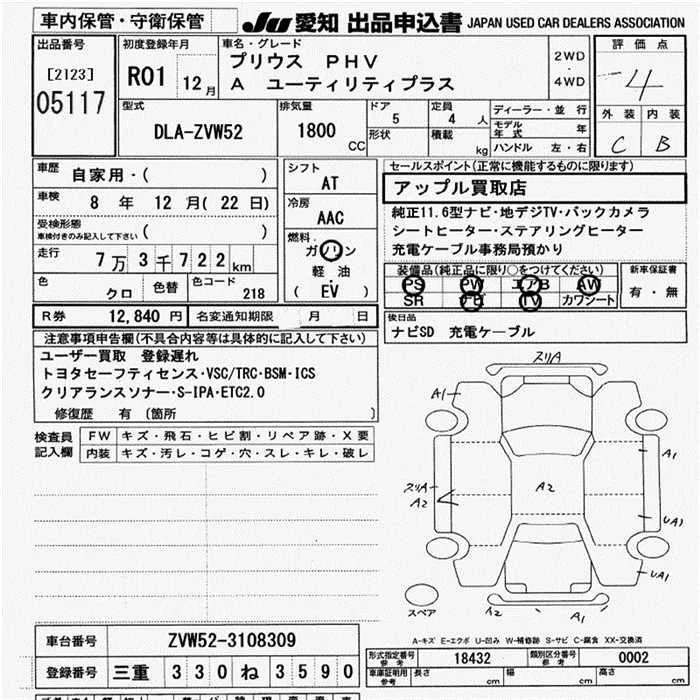 車内保管・守衛保管
JU 愛知 出品申込書 JAPAN USED CAR DEALERS ASSOCIATION
出品番号
[2123]
05117
初度登録年月
R01 12月
車名・グレード
プリウス PHV
A ユーティリティプラス
2WD
・
4WD
評価点
4
外装 内装
C B
型式
DLA-ZVW52
排気量
1800
CC
ドア
5
形状
定員
4 人
積載
kg
ディーラー・並行
モデル年式 年
ハンドル 左・右
車歴
自家用・( )
車検
8 年 12 月( 22 日)
受検形態
車検付きのみ記入して下さい ( )
走行
7万3千722km
色
クロ
色替
色コード
218
シフト
AT
冷房
AAC
燃料
ガソリン
軽油
( EV )
セールスポイント(正常に機能するものに限ります)
アップル買取店
純正11.6型ナビ・地デジTV・バックカメラ
シートヒーター・ステアリングヒーター
充電ケーブル事務局預かり
装備品(純正品に限り○をつけてください)
PS PW エアB AW
SR ナビ TV カワシート
新車保証書
有・無
R券 12,840 円 名変通知期限 月 日
後日品
ナビSD 充電ケーブル
注意事項申告欄(不具合内容等は具体的に記入して下さい)
ユーザー買取 登録遅れ
トヨタセーフティセンス・VSC/TRC・BSM・ICS
クリアランスソナー・S-IPA・ETC2.0
修復歴 有 (箇所 )
検査員
記入欄
FW キズ・飛石・ヒビ割・リペア跡・X要
内装 キズ・汚レ・コゲ・穴・スレ・キレ・破レ
スリA
A1
A1
スリA
A2
A2
UA1
UA1
スペア
A2
A1
A-キズ E-エクボ U-凹み W-補修跡 S-サビ C-腐食 XX-交換済
車台番号 ZVW52-3108309
登録番号 三重 330 ね 3590
形式指定番号
参考
18432
類別区分番号
参考
0002
車庫証明用
参考
長さ cm 幅 cm 高さ cm